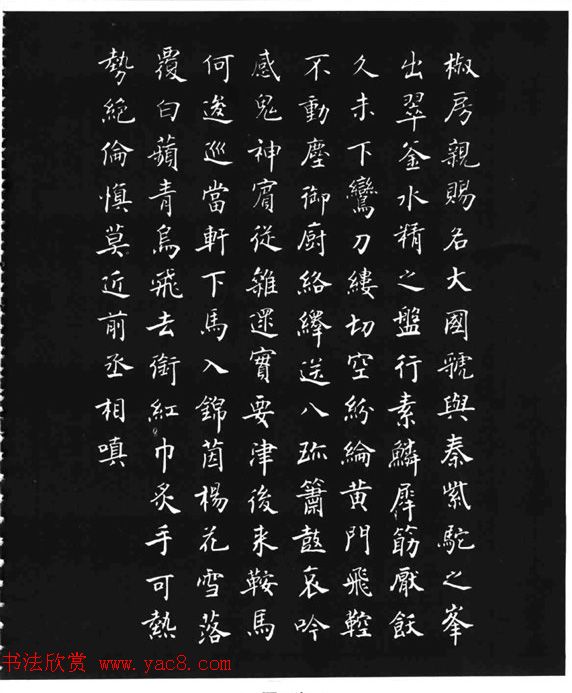 椒房親賜名大國虢與秦紫駝之峯
出翠釜水精之盤行素鱗犀筯厭飫
久未下鸞刀縷切空紛綸黄門飛鞚
不動塵御厨絡繹送八珎簫鼓哀吟
感鬼神賓從雜遝實要津後来鞍馬
何逡巡當軒下馬入錦茵楊花雪落
覆白蘋青鳥飛去銜紅巾炙手可熱
勢絶倫慎莫近前丞相嗔
书法欣赏 www.yac8.com